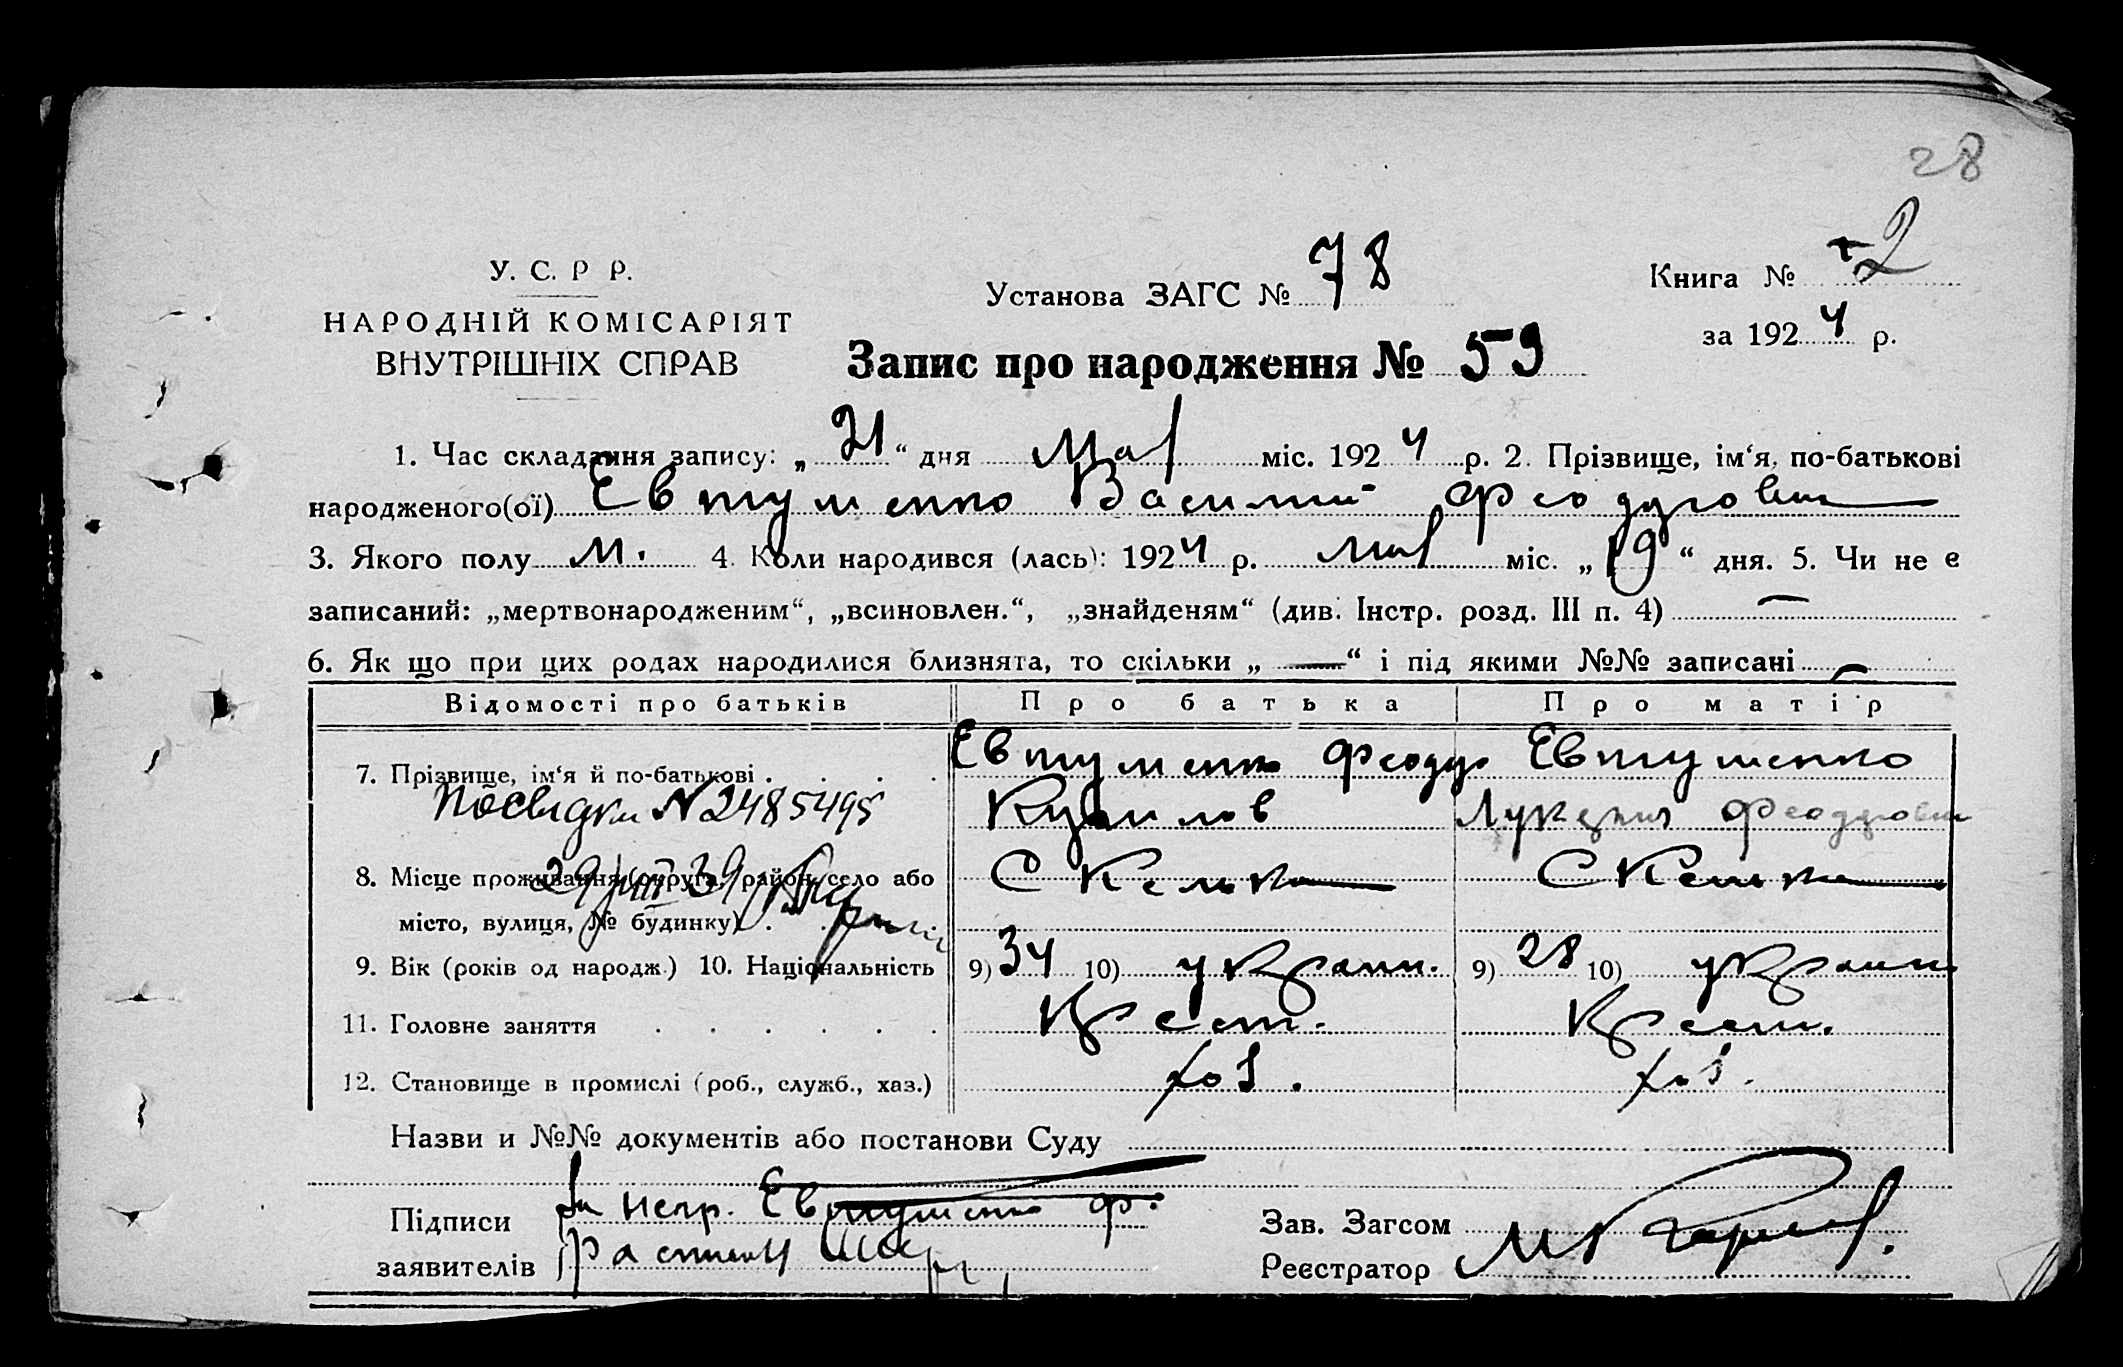 28
У. С. Р Р.
НАРОДНІЙ КОМІСАРІЯТ
ВНУТРІШНІХ СПРАВ
Установа ЗАГС № 78
Книга № 2
за 1924 р.
Запис про народження № 59
1. Час складання запису: „21“ дня Мая міс. 1924 р. 2. Прізвище, ім‘я, по-батькові
народженого(ої) Евтушенко Василий Феодорович
3. Якого полу м. 4. Коли народився (лась): 1924 р. Мая міс. „19“ дня. 5. Чи не є
записаний: „мертвонародженим“, „всиновлен.“, „знайденям“ (див. Інстр. розд. III п. 4) —
6. Як що при цих родах народилися близнята, то скільки „—“ і під якими №№ записані —
Відомості про батьків Про батька Про матір
7. Прізвище, ім‘я й по-батькові . . . . Евтушенко Феодор Евтушенко
N 2485495 Феодоровн
8. Місце проживання (округа, район, село або
29/VIII 39
місто, вулиця, № будинку) . .
9. Вік (років од народж.) 10. Національність 9) 34 10) украин. 9) 28 10) украин.
11. Головне заняття . . . . . . Крест. Крест.
12. Становище в промислі (роб., служб., хаз.) хоз. хоз.
Назви и №№ документів або постанови Суду
Підписи За негр. Евтушенко Ф.
заявителів
Зав. Загсом
Реєстратор